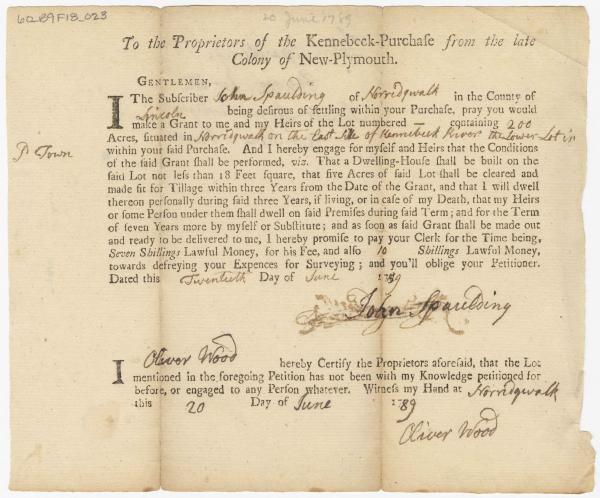 6Q B9F18_023
20 June 1789
To the Proprietors of the Kennebeck-Purchase from the late
Colony of New-Plymouth.
GENTLEMEN,
I The Subscriber John Spaulding of Norridgwalk in the County of
Lincoln being desirous of settling within your Purchase, pray you would
make a Grant to me and my Heirs of the Lot numbered — containing 200
Acres, situated in Norridgwalk on the East Side of Kennebeck River the Lower Lot in
sd Town
within your said Purchase. And I hereby engage for myself and Heirs that the Conditions
of the said Grant shall be performed, viz. That a Dwelling-House shall be built on the
said Lot not less than 18 Feet square, that five Acres of said Lot shall be cleared and
made fit for Tillage within three Years from the Date of the Grant, and that I will dwell
thereon personally during said three Years, if living, or in case of my Death, that my Heirs
or some Person under them shall dwell on said Premises during said Term; and for the Term
of seven Years more by myself or Substitute; and as soon as said Grant shall be made out
and ready to be delivered to me, I hereby promise to pay your Clerk for the Time being,
Seven Shillings Lawful Money, for his Fee, and also 10 Shillings Lawful Money,
towards defreying your Expences for Surveying; and you'll oblige your Petitioner.
Dated this Twentieth Day of June 1789
John Spaulding
I Oliver Wood hereby Certify the Proprietors aforesaid, that the Lot
mentioned in the foregoing Petition has not been with my Knowledge petitioned for
before, or engaged to any Person whatever. Witness my Hand at Norridgwalk
this 20 Day of June 1789
Oliver Wood